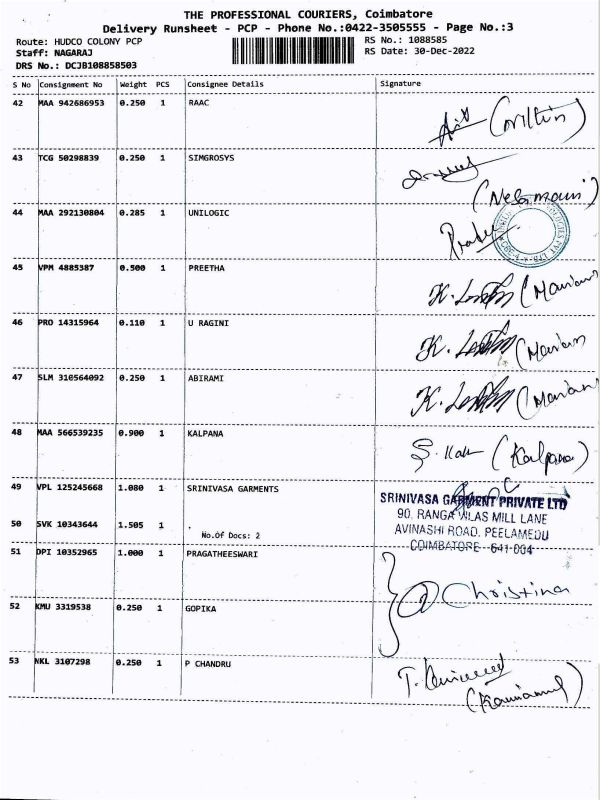 THE PROFESSIONAL COURIERS, Coimbatore
Delivery Runsheet - PCP - Phone No.:0422-3505555 - Page No.:3
Route: HUDCO COLONY PCP
RS No.: 1088585
Staff: NAGARAJ
RS Date: 30-Dec-2022
DRS No.: DCJB108858503
S No Consignment No Weight PCS Consignee Details Signature
42 MAA 942686953 0.250 1 RAAC
43 TCG 50298839 0.250 1 SIMGROSYS
44 MAA 292130804 0.285 1 UNILOGIC
45 VPM 4885387 0.500 1 PREETHA
46 PRO 14315964 0.110 1 U RAGINI
47 SLM 310564092 0.250 1 ABIRAMI
48 MAA 566539235 0.900 1 KALPANA
(Kalpana)
49 VPL 125245668 1.080 1 SRINIVASA GARMENTS
SRINIVASA GARMENT PRIVATE LTD
90, RANGA VILAS MILL LANE
50 SVK 10343644 1.505 1 .
No.Of Docs: 2
AVINASHI ROAD, PEELAMEDU
COIMBATORE - 641 004
51 DPI 10352965 1.000 1 PRAGATHEESWARI
Christina
52 KMU 3319538 0.250 1 GOPIKA
53 NKL 3107298 0.250 1 P CHANDRU